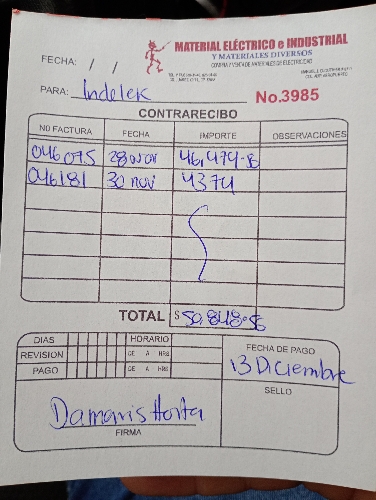 MATERIAL ELÉCTRICO e INDUSTRIAL
Y MATERIALES DIVERSOS
COMPRA Y VENTA DE MATERIALES DE ELECTRICIDAD
FECHA: / /
PARA: Indelek
No.3985
CONTRARECIBO
N0 FACTURA FECHA IMPORTE OBSERVACIONES
046075 28 nov
046181 30 nov 4374
TOTAL $
DIAS HORARIO
REVISION DE A HRS
PAGO DE A HRS
FECHA DE PAGO
13 Diciembre
SELLO
Damaris Horta
FIRMA